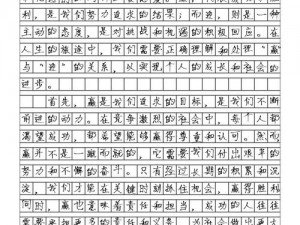 利，是我们努力追求的结果；而进，则是一种
主动的态度，是对挑战和机遇的积极回应。在
人生的旅途中，我们需要正确理解和处理“赢
”与“进”的关系，以实现个人的成长和社会的
进步。
首先，赢是我们追求的目标，是我们不断
前进的动力。在竞争激烈的社会中，每个人都
渴望成功，都希望能够赢得尊重和认可。然而
赢并不是一蹴而就的，它需要我们付出艰辛的
努力和不懈的奋斗。只有经过长期的积累和沉
淀，我们才能在关键时刻抓住机会，赢得胜利
同时，赢也意味着责任和担当。成功的人往往
需要承担更多的责任和义务